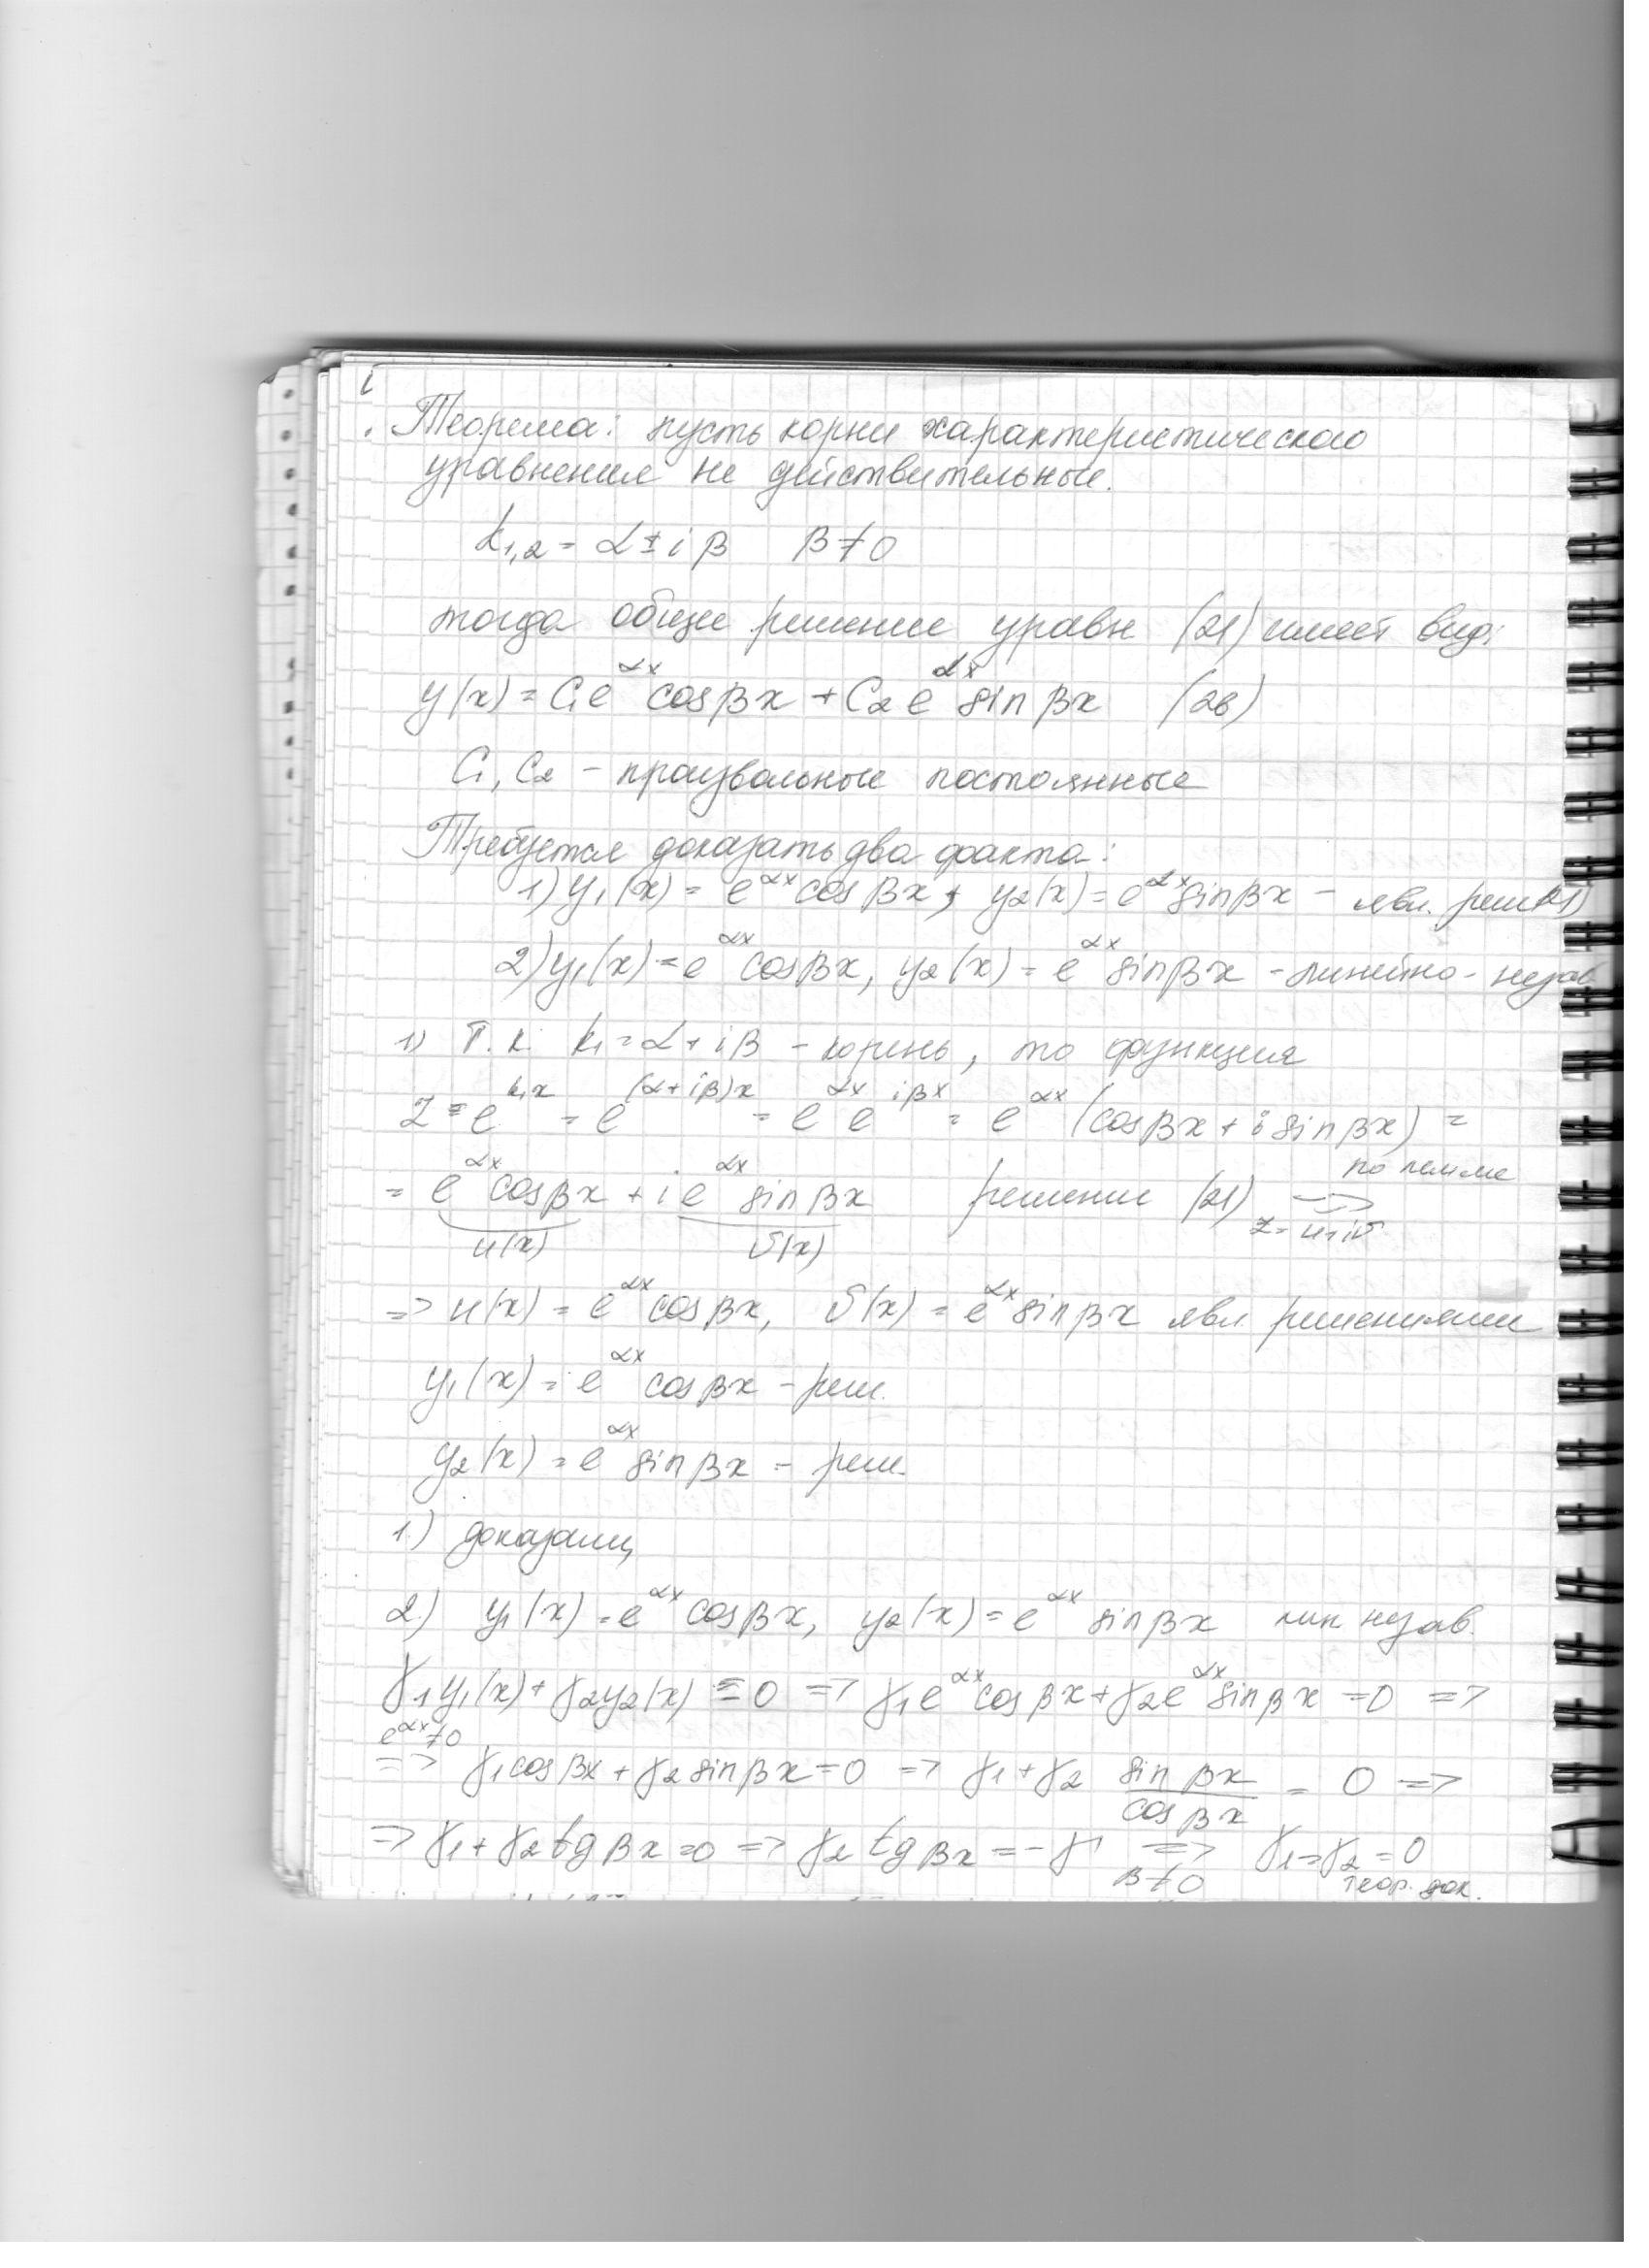 Теорема: пусть корни характеристического
уравнения не действительные.
k₁,₂ = α ± iβ   β ≠ 0
тогда общее решение уравн (21) имеет вид:
y(x) = C₁e^{αx} cosβx + C₂e^{αx} sinβx   (26)
C₁, C₂ – произвольные постоянные
Требуется доказать два факта:
1) y₁(x) = e^{αx} cosβx, y₂(x) = e^{αx} sinβx – явл. реш (21)
2) y₁(x) = e^{αx} cosβx, y₂(x) = e^{αx} sinβx – линейно-незав
1) т.к. k₁ = α + iβ – корень, то функция
z = e^{k₁x} = e^{(α+iβ)x} = e^{αx} e^{iβx} = e^{αx} (cosβx + i sinβx) =
= e^{αx} cosβx + i e^{αx} sinβx   решение (21) ⇒ по лемме
u(x)   v(x)   z = u+iv
=> u(x) = e^{αx} cosβx, v(x) = e^{αx} sinβx явл решениями
y₁(x) = e^{αx} cosβx – реш.
y₂(x) = e^{αx} sinβx – реш.
1) доказали
2) y₁(x) = e^{αx} cosβx, y₂(x) = e^{αx} sinβx лин незав.
γ₁y₁(x) + γ₂y₂(x) ≡ 0 => γ₁e^{αx} cosβx + γ₂e^{αx} sinβx = 0 =>
e^{αx} ≠ 0
=> γ₁cosβx + γ₂sinβx = 0 => γ₁ + γ₂ sinβx / cosβx = 0 =>
=> γ₁ + γ₂ tgβx = 0 => γ₂ tgβx = -γ₁ => γ₁ = γ₂ = 0
β ≠ 0   теор. док.